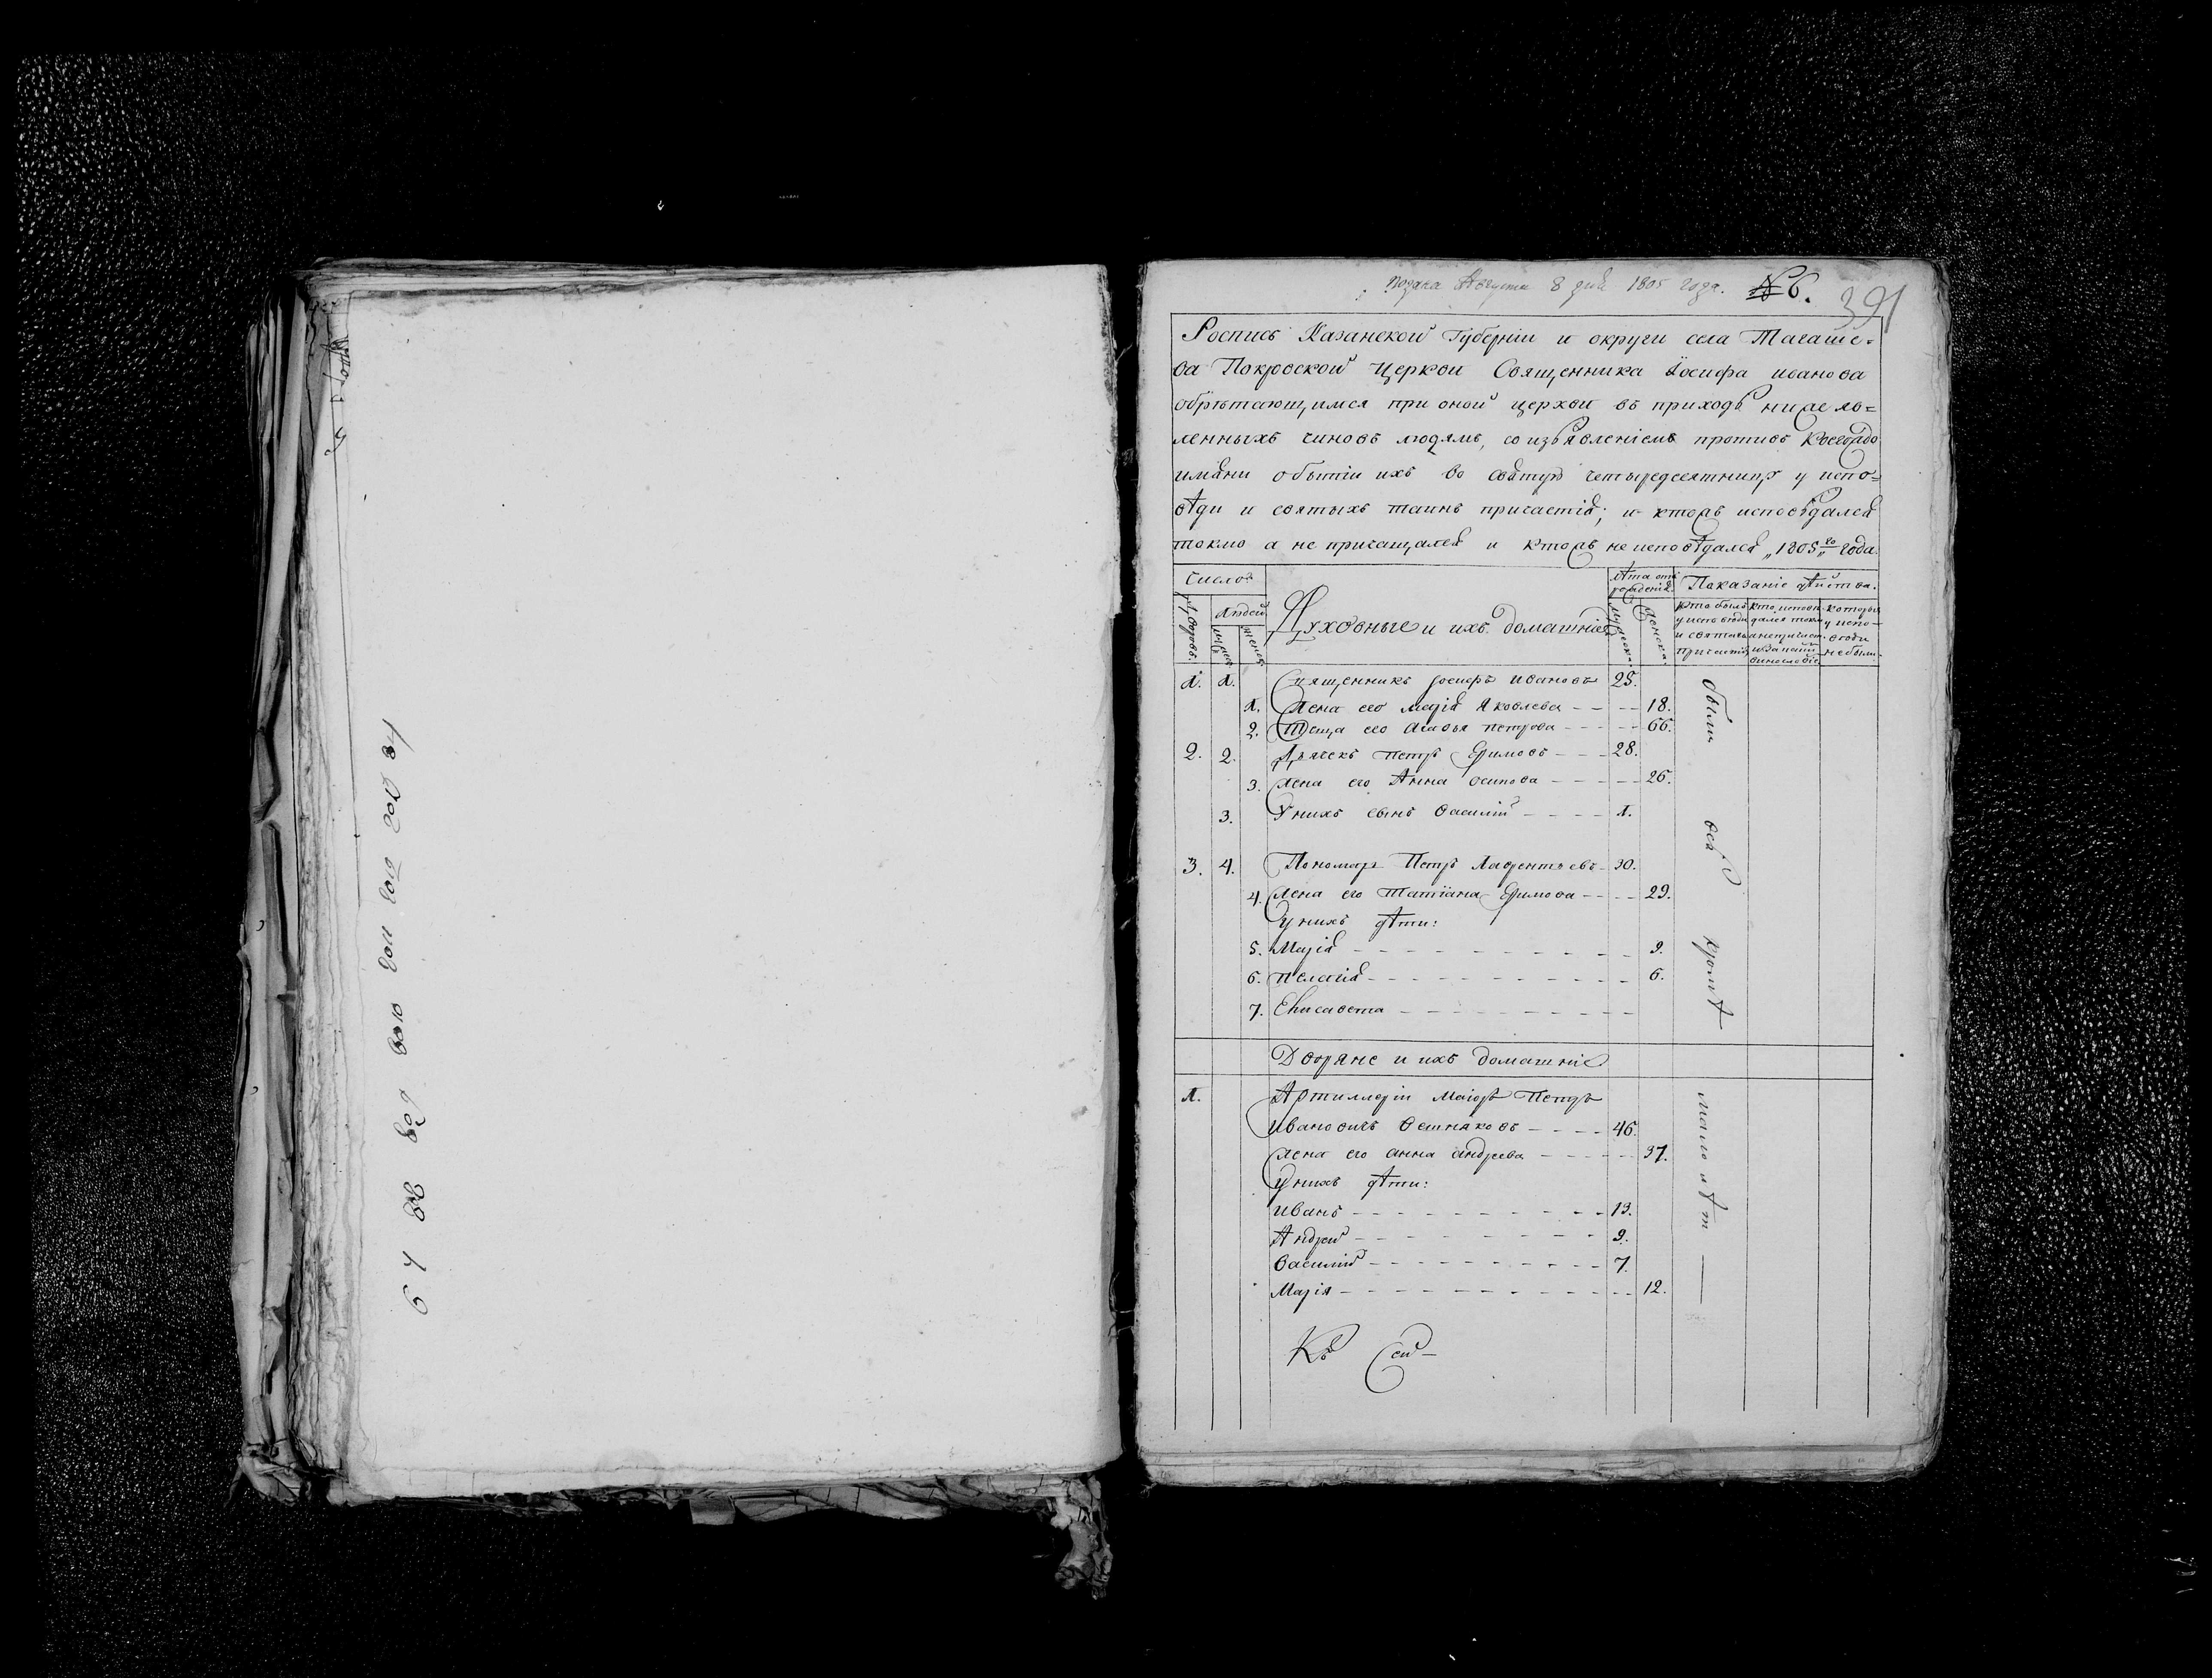 подана Августа 8 дня 1805 года. № 6.
391
Роспись Казанской Губерніи и округи села Тагаше-
ва Покровской Церкви Священника Іосифа иванова
обрѣтающимся при оной церкви въ приходѣ нижеяв=
ленныхъ чиновъ людямъ, со изъявленіемъ противъ коегождо
имяни о бытіи ихъ во святую четыредесятницу у испо=
вѣди и святыхъ таинъ причастія; и ктожъ исповѣдался
токмо а не причащался и ктожъ не исповѣдался „1805„го года.
Число
Духовные и ихъ домашніе
лѣта отъ рожденія
Показаніе дѣйства.
дворовъ.
людей
мужеска
женска
кто былъ у исповѣди и святаго причастія
кто исповѣдался токмо а не причаст.
которые у исповѣди не были.
1. 1. Священникъ Іосифъ ивановъ 25.
1. Жена его Марія Яковлева - - - - 18.
2. Теща его Агафья петрова - - - - 66.
2. 2. Дьячекъ петръ Ефимовъ - - - 28.
3. Жена его Анна осипова - - - - - 26.
3. У нихъ сынъ василій - - - - 1.
3. 4. Пономарь Петръ Лаврентьевъ - 30.
4. Жена его Татіана Ефимова - - - - 29.
У нихъ дѣти:
5. Марія - - - - - - - - - 9.
6. пелагія - - - - - - - - - 6.
7. Елисавета - - - - - - - - -
были
всѣ
кромѣ
Дворяне и ихъ домашніе
1. Артиллеріи Маіоръ Петръ
Ивановичъ вешняковъ - - - - 46.
Жена его анна андреева - - - - - 37.
У нихъ дѣти:
Иванъ - - - - - - - - - 13.
Андрей - - - - - - - - - 9.
василій - - - - - - - - - 7.
Марія - - - - - - - - - - - 12.
малолѣт
Къ сей -